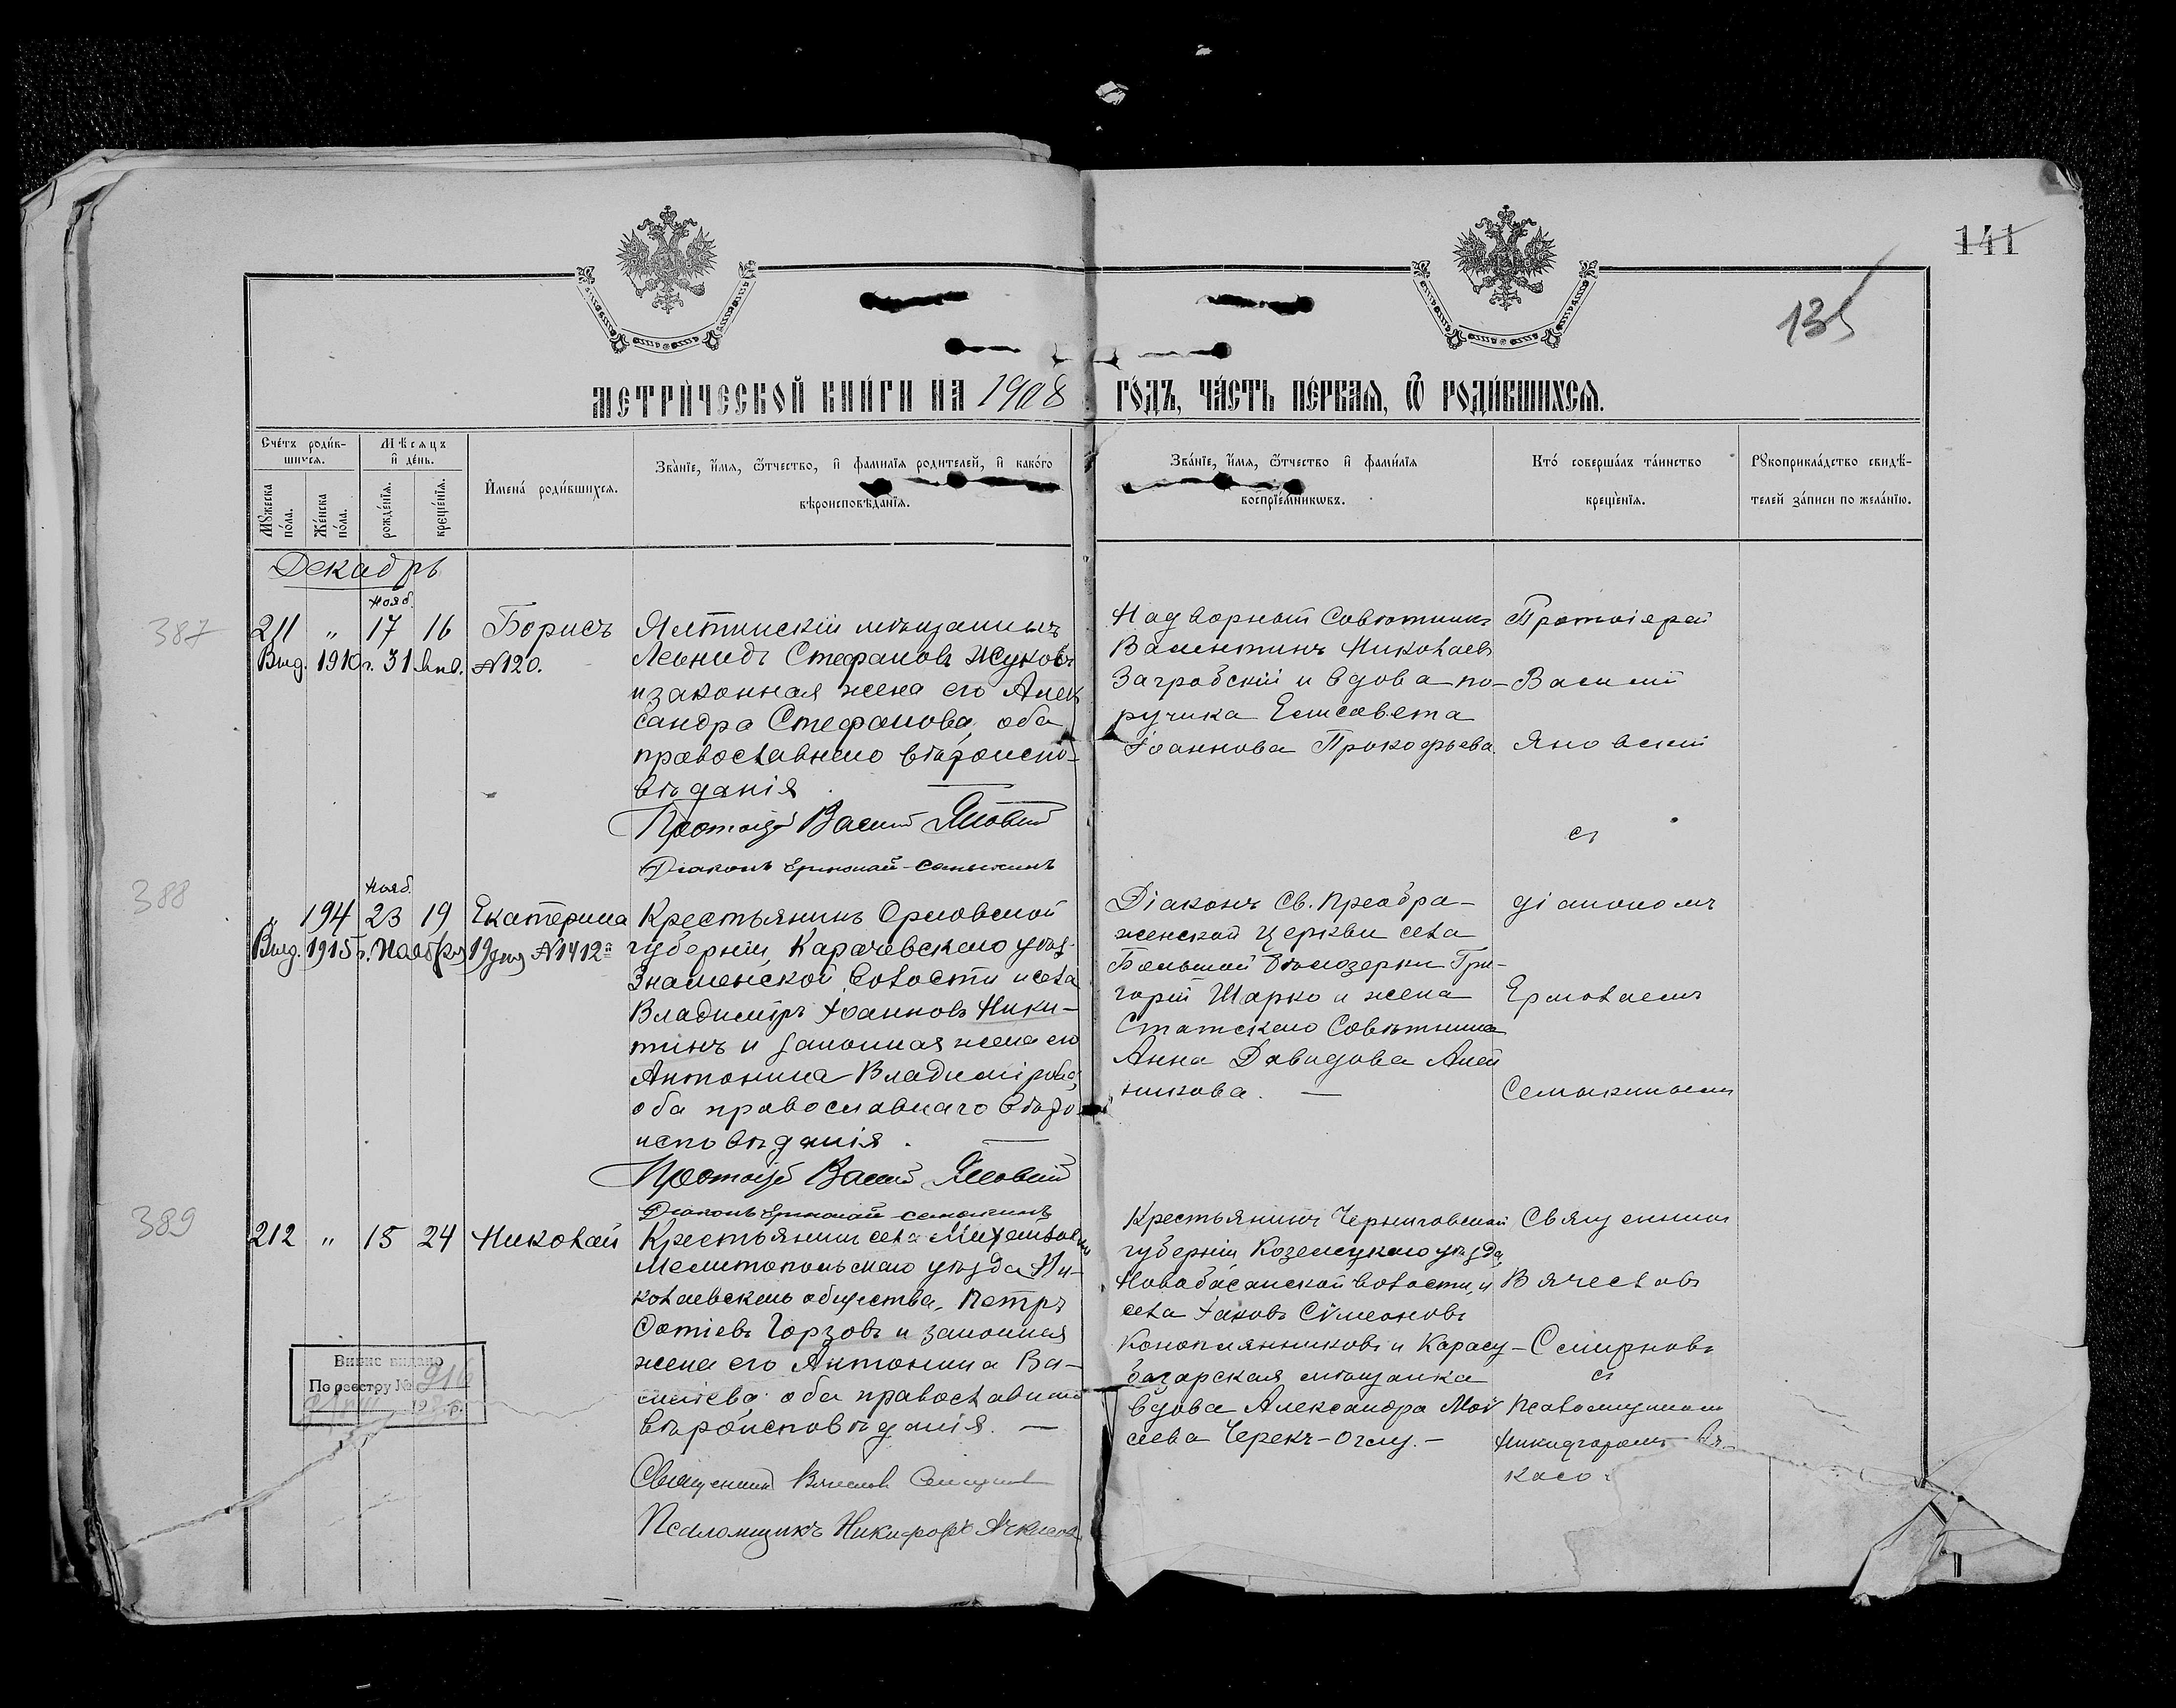 141
135
МЕТРИ́ЧЕСКОЙ КНИ́ГИ НА 1908 ГО́ДЪ, ЧА́СТЬ ПЕ́РВАѦ, Ѿ РОДИ́ВШИХСѦ.
Счётъ роди́в-
шихсѧ.
Мѣсѧцъ
и де́нь.
Мꙋжеска по́ла.
Же́нска по́ла.
рожде́нїѧ.
креще́нїѧ.
Имена́ роди́вшихсѧ.
Зва́нїе, и́мѧ, ѻ́тчество, и фами́лїѧ родителей, и како́го
вѣроисповѣ́данїѧ.
Зва́нїе, и́мѧ, ѻ́тчество и фами́лїѧ
воспрїе́мникѡвъ.
Кто́ соверша́лъ та́инство
креще́нїѧ.
Рꙋкоприкла́дство свидѣ́-
телей за́писи по жела́нїю.
Декабрь
387
Нояб.
211 " 17 16 Борисъ
Выд. 1910 г. 31 Янв. №120.
Ялтинскій мѣщанинъ
Леонидъ Стефановъ Жуковъ
и законная жена его Алек
сандра Стефанова, оба
православнаго вѣроиспо-
вѣданія
Протоіерей Василій Яновскій
Діаконъ Ермолай Семыкинъ
Надворный Совѣтникъ
Валентинъ Николаевъ
Загробскій и вдова по-
ручика Елисавета
Іоаннова Прокофьева.
Протоіерей
Василій
Яновскій
съ
388
Нояб.
194 23 19 Екатерина
Выд. 1915 г. Ноября 19 дня №1412
Крестьянинъ Орловской
губерніи, Карачевскаго уѣз.
Знаменской волости и села
Владиміръ Іоанновъ Ники-
тинъ и законная жена его
Антонина Владимірова,
оба православнаго вѣро-
исповѣданія.
Протоіерей Василій Яновскій
Діаконъ Ермолай Семыкинъ
Діаконъ Св. Преобра-
женской Церкви села
Большой Бѣлозерки Гри-
горій Шарко и жена
Статскаго Совѣтника
Анна Давидова Алей
никова.
діакономъ
Ермолаемъ
Семыкинымъ
389
212 " 15 24 Николай
Крестьянинъ села Михайловки
Мелитопольскаго уѣзда Ни-
колаевскаго общества, Петръ
Фотіевъ Горзовъ и законная
жена его Антонина Ва-
силіева оба православнаго
вѣроисповѣданія. —
Священникъ Вячеславъ Смирновъ
Псаломщикъ Никифоръ
Крестьянинъ Черниговской
губерніи, Козелецкаго уѣзда,
Новобасанской волости, и
села Іаковъ Сѵмеоновъ
Коноплянниковъ и Карасу-
базарская мѣщанка
вдова Александра Мои
сеева Черекъ-Оглу. —
Священникъ
Вячеславъ
Смирновъ
съ
Псаломщикомъ
Никифоромъ
Випис видано
По реестру № 916